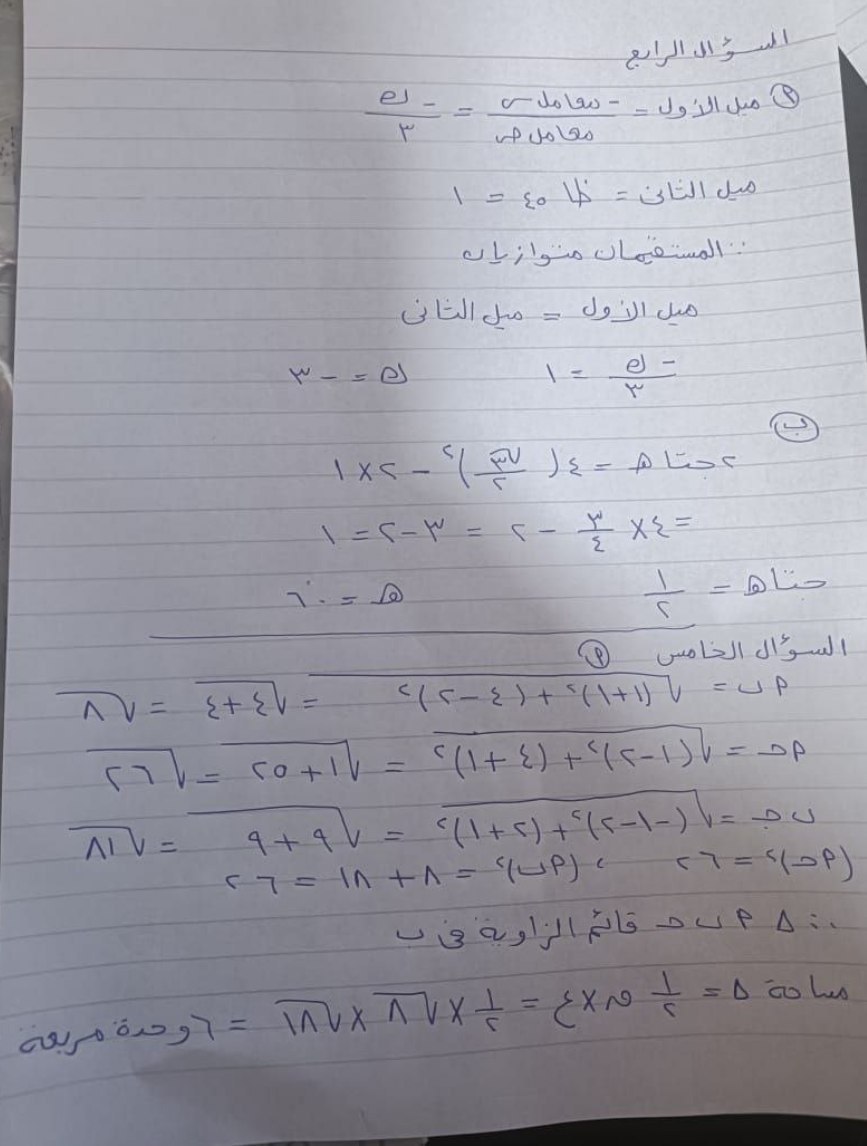 السؤال الرابع
(أ) ميل الأول = - معامل س / معامل ص = - ك / ٣
ميل الثانى = ظا ٤٥ = ١
∵ المستقيمان متوازيان
ميل الأول = ميل الثانى
- ك / ٣ = ١ ك = - ٣
(ب)
٢ جتا هـ = ٤ (√٣ / ٢)² - ٢ × ١
= ٤ × ٣ / ٤ - ٢ = ٣ - ٢ = ١
جتا هـ = ١ / ٢ هـ = ٦٠°
السؤال الخامس (أ)
أ ب = √(١+١)² + (٤-٢)² = √٤+٤ = √٨
أ جـ = √(١-٢)² + (٤+١)² = √١+٢٥ = √٢٦
ب جـ = √(-١-٢)² + (٢+١)² = √٩+٩ = √١٨
(أ جـ)² = ٢٦ ، (أ ب)² = ٨ + ١٨ = ٢٦
∴ Δ أ ب جـ قائم الزاوية فى ب
مساحة Δ = ١ / ٢ ق × ع = ١ / ٢ × √٨ × √١٨ = ٦ وحدة مربعة